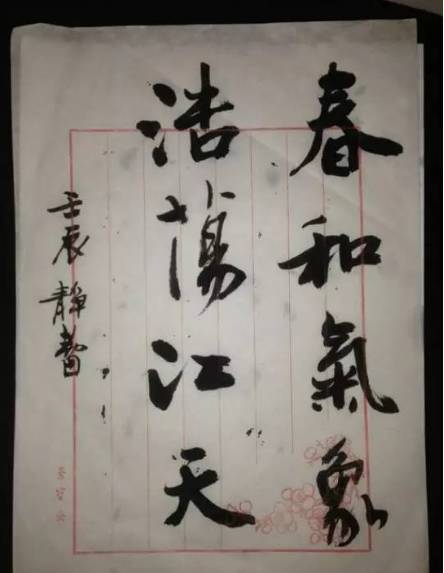 春和氣象
浩蕩江天
壬辰靜書